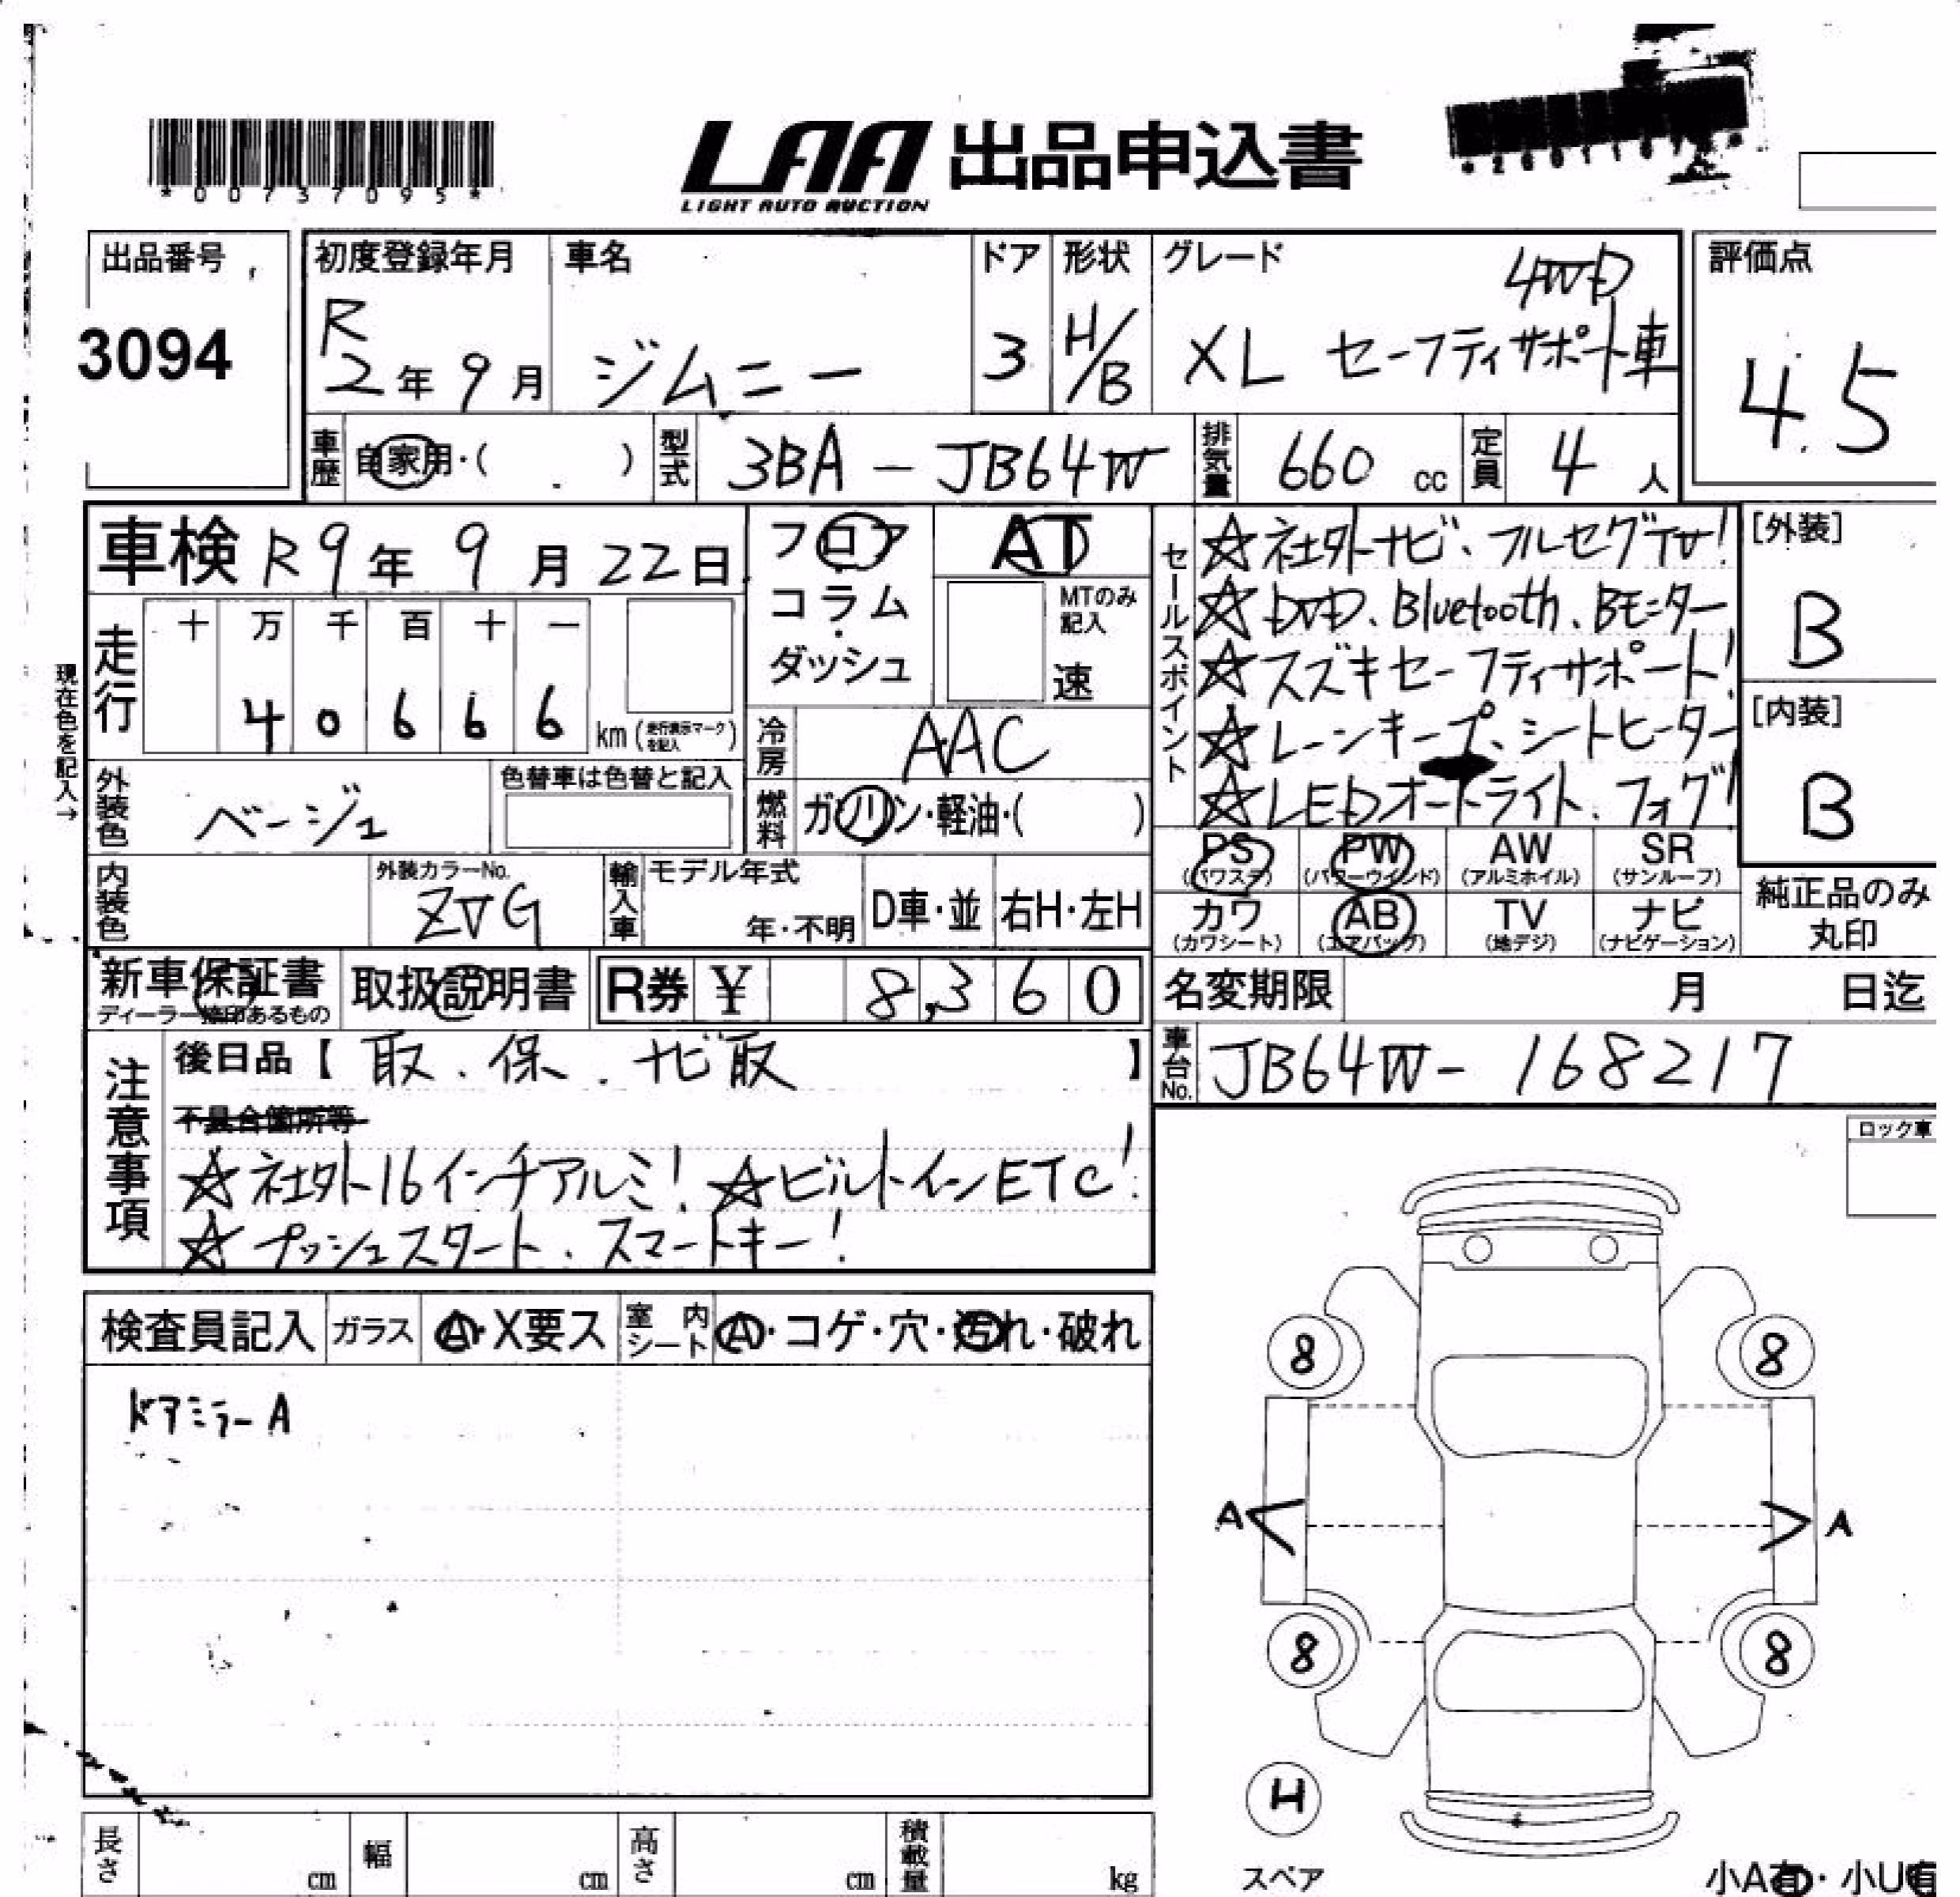 *00737095*
LAA 出品申込書
LIGHT AUTO AUCTION
出品番号
3094
初度登録年月
R
2年 9月
車名
ジムニー
ドア
3
形状
H/B
グレード
4WD
XL セーフティサポート車
評価点
4.5
車歴
自家用・( )
型式
3BA-JB64W
排気量
660 cc
定員
4 人
車検 R9年 9月 22日
フロア
コラム
ダッシュ
AT
MTのみ記入
速
現在色を記入→
走行
十 万 千 百 十 一
4 0 6 6 6
km(走行表示マークを記入)
冷房
AAC
外装色
ベージュ
色替車は色替と記入
燃料
ガソリン・軽油・( )
内装色
外装カラーNo.
ZVG
輸入車
モデル年式
年・不明
D車・並
右H・左H
セールスポイント
☆社外ナビ、フルセグTV!
☆DVD、Bluetooth、Bモニター
☆スズキセーフティサポート!
☆レーンキープ、シートヒーター
☆LEDオートライト、フォグ!
[外装]
B
[内装]
B
PS AW SR PW
(パワステ) (パワーウインド) (アルミホイル) (サンルーフ)
カワ AB TV ナビ
(カワシート) (エアバッグ) (地デジ) (ナビゲーション)
純正品のみ
丸印
新車保証書
ディーラー捺印あるもの
取扱説明書
R券 ¥ 8,360
名変期限 月 日迄
車台No.
JB64W-168217
注意事項
後日品【 取、保、ナビ取 】
不具合箇所等
☆社外16インチアルミ! ☆ビルトインETC!
☆プッシュスタート、スマートキー!
ロック車
検査員記入
ガラス
A・X要ス
室内シート
A・コゲ・穴・汚れ・破れ
ドアミラーA
8 8
A A
8 8
H
スペア
小A有・小U有
長さ cm
幅 cm
高さ cm
積載量 kg